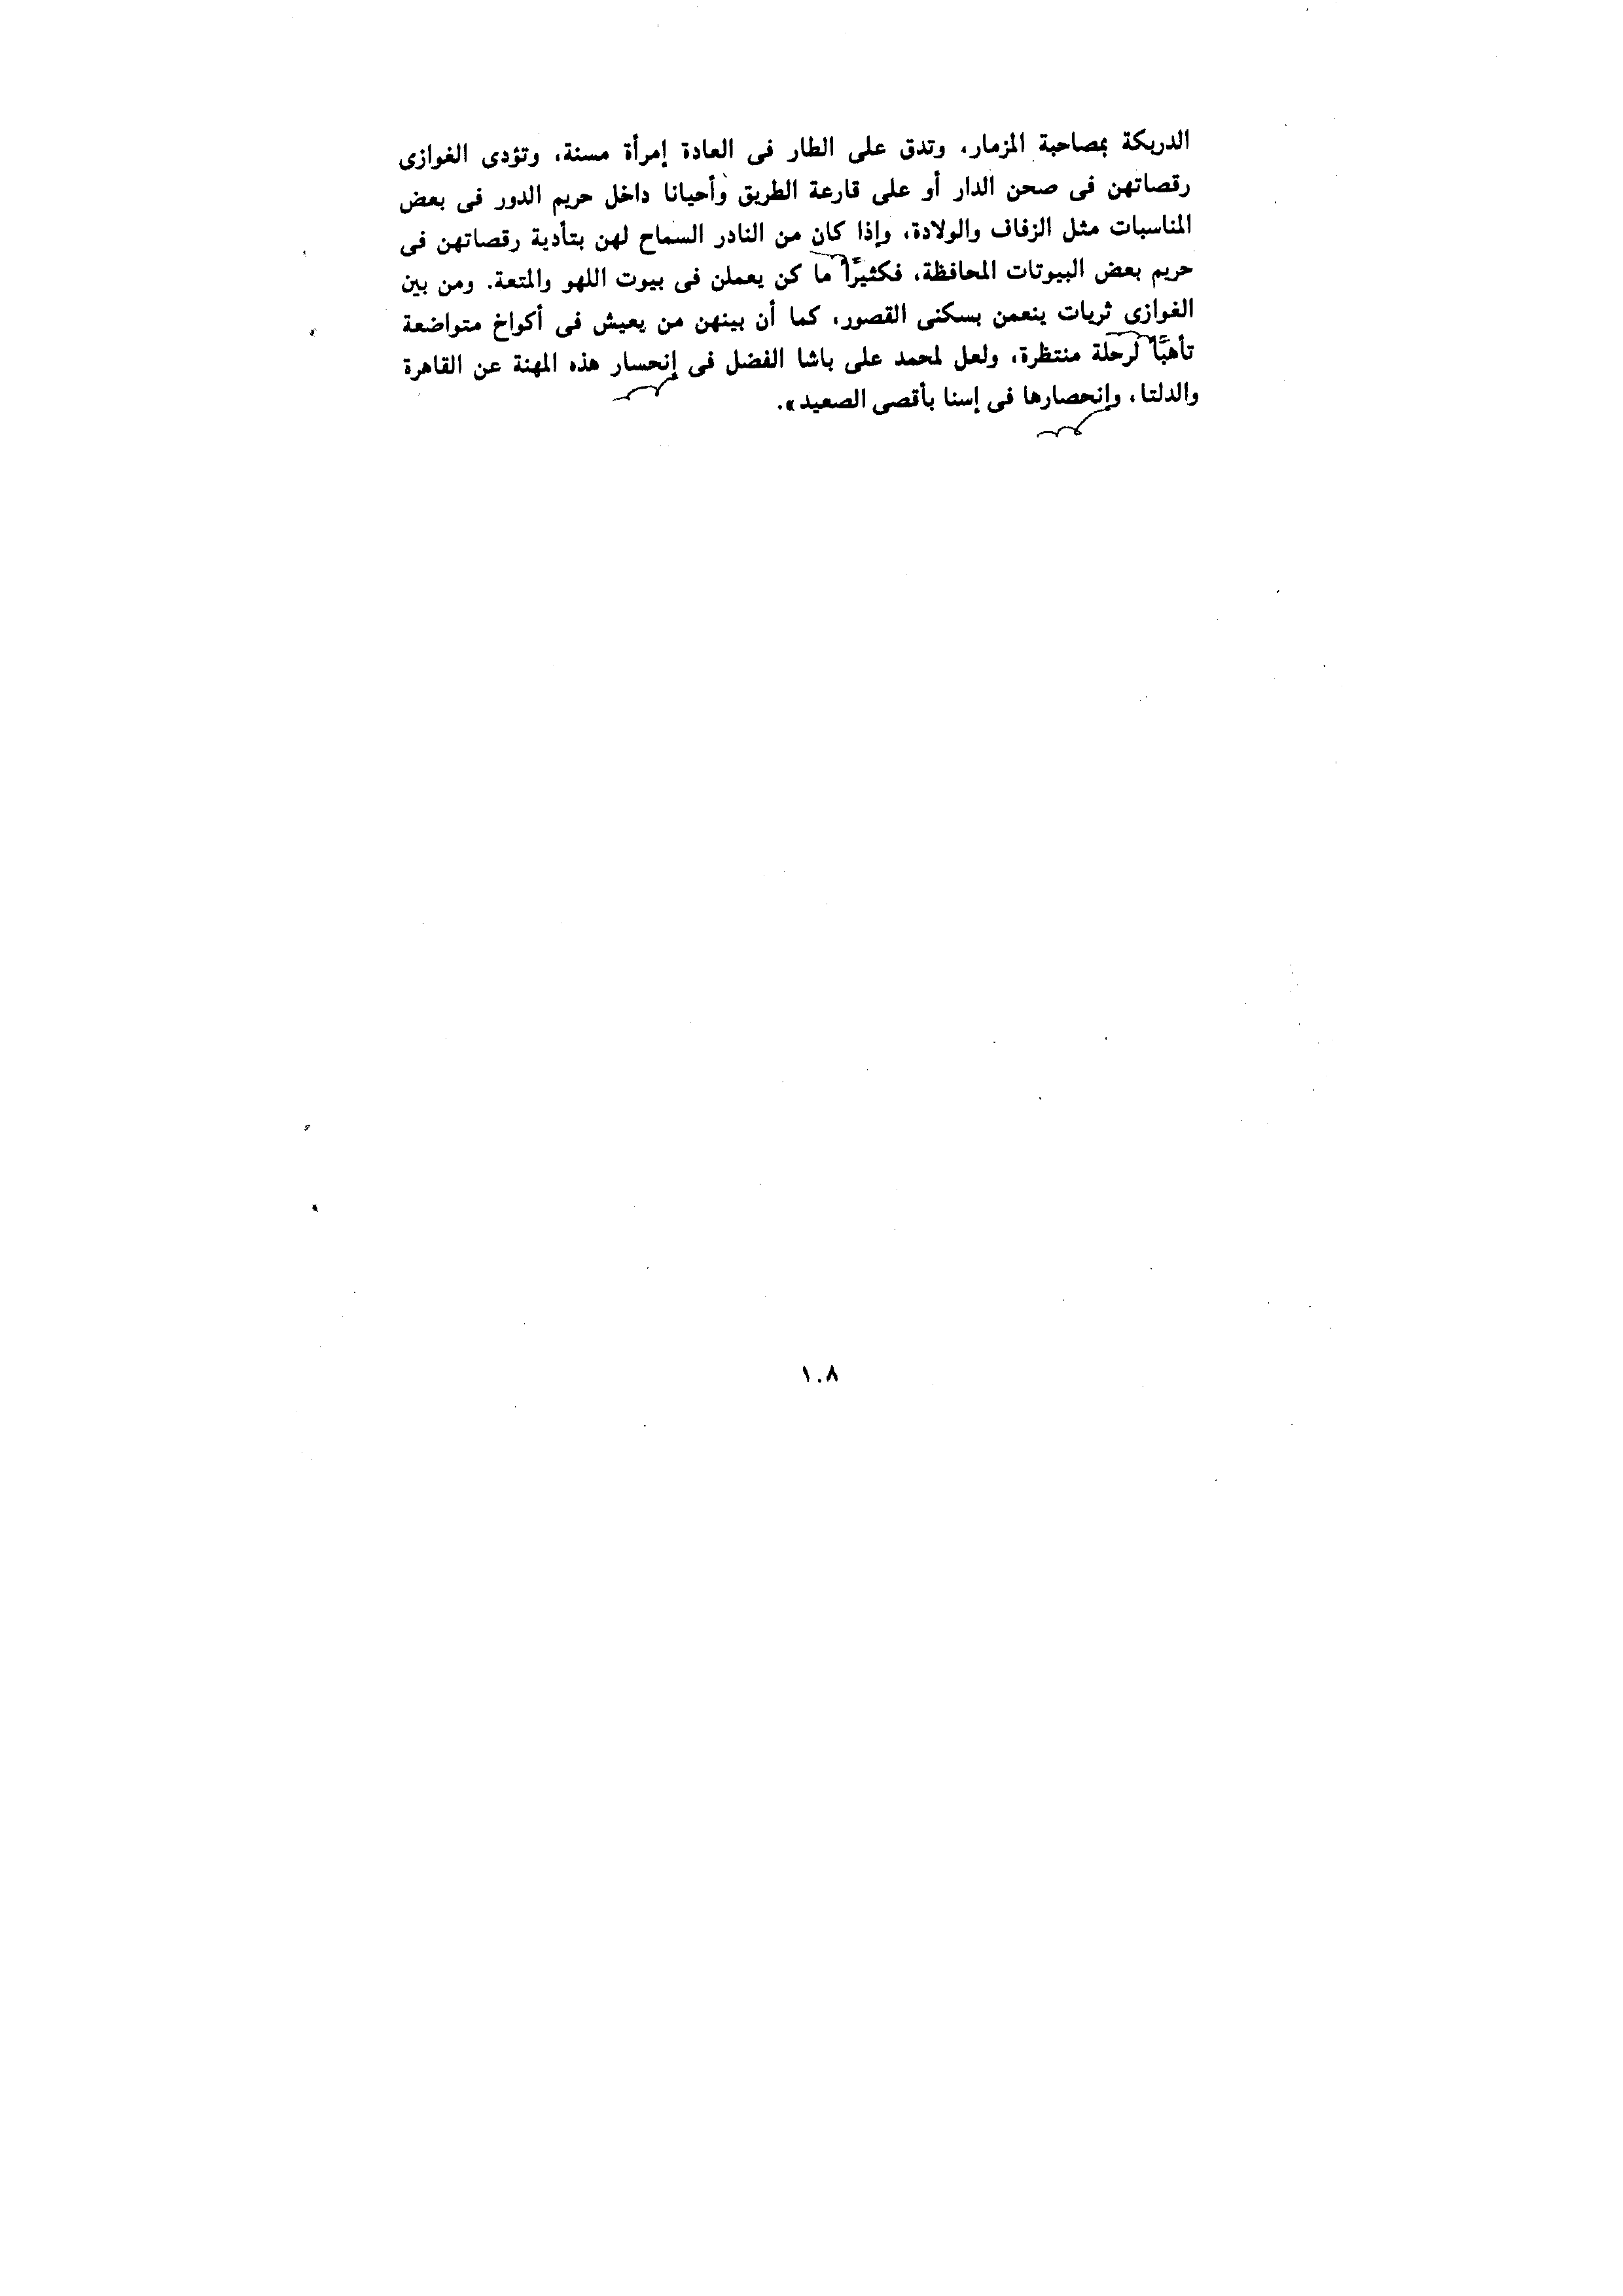 الدربكة بمصاحبة المزمار، وتدق على الطار فى العادة إمرأة مسنة، وتؤدى الغوازى
رقصاتهن فى صحن الدار أو على قارعة الطريق وأحيانا داخل حريم الدور فى بعض
المناسبات مثل الزفاف والولادة، وإذا كان من النادر السماح لهن بتأدية رقصاتهن فى
حريم بعض البيوتات المحافظة، فكثيرًا ما كن يعملن فى بيوت اللهو والمتعة. ومن بين
الغوازى ثريات ينعمن بسكنى القصور، كما أن بينهن من يعيش فى أكواخ متواضعة
تأهبًا لرحلة منتظرة، ولعل لمحمد على باشا الفضل فى إنحسار هذه المهنة عن القاهرة
والدلتا، وإنحصارها فى إسنا بأقصى الصعيد».
١٠٨